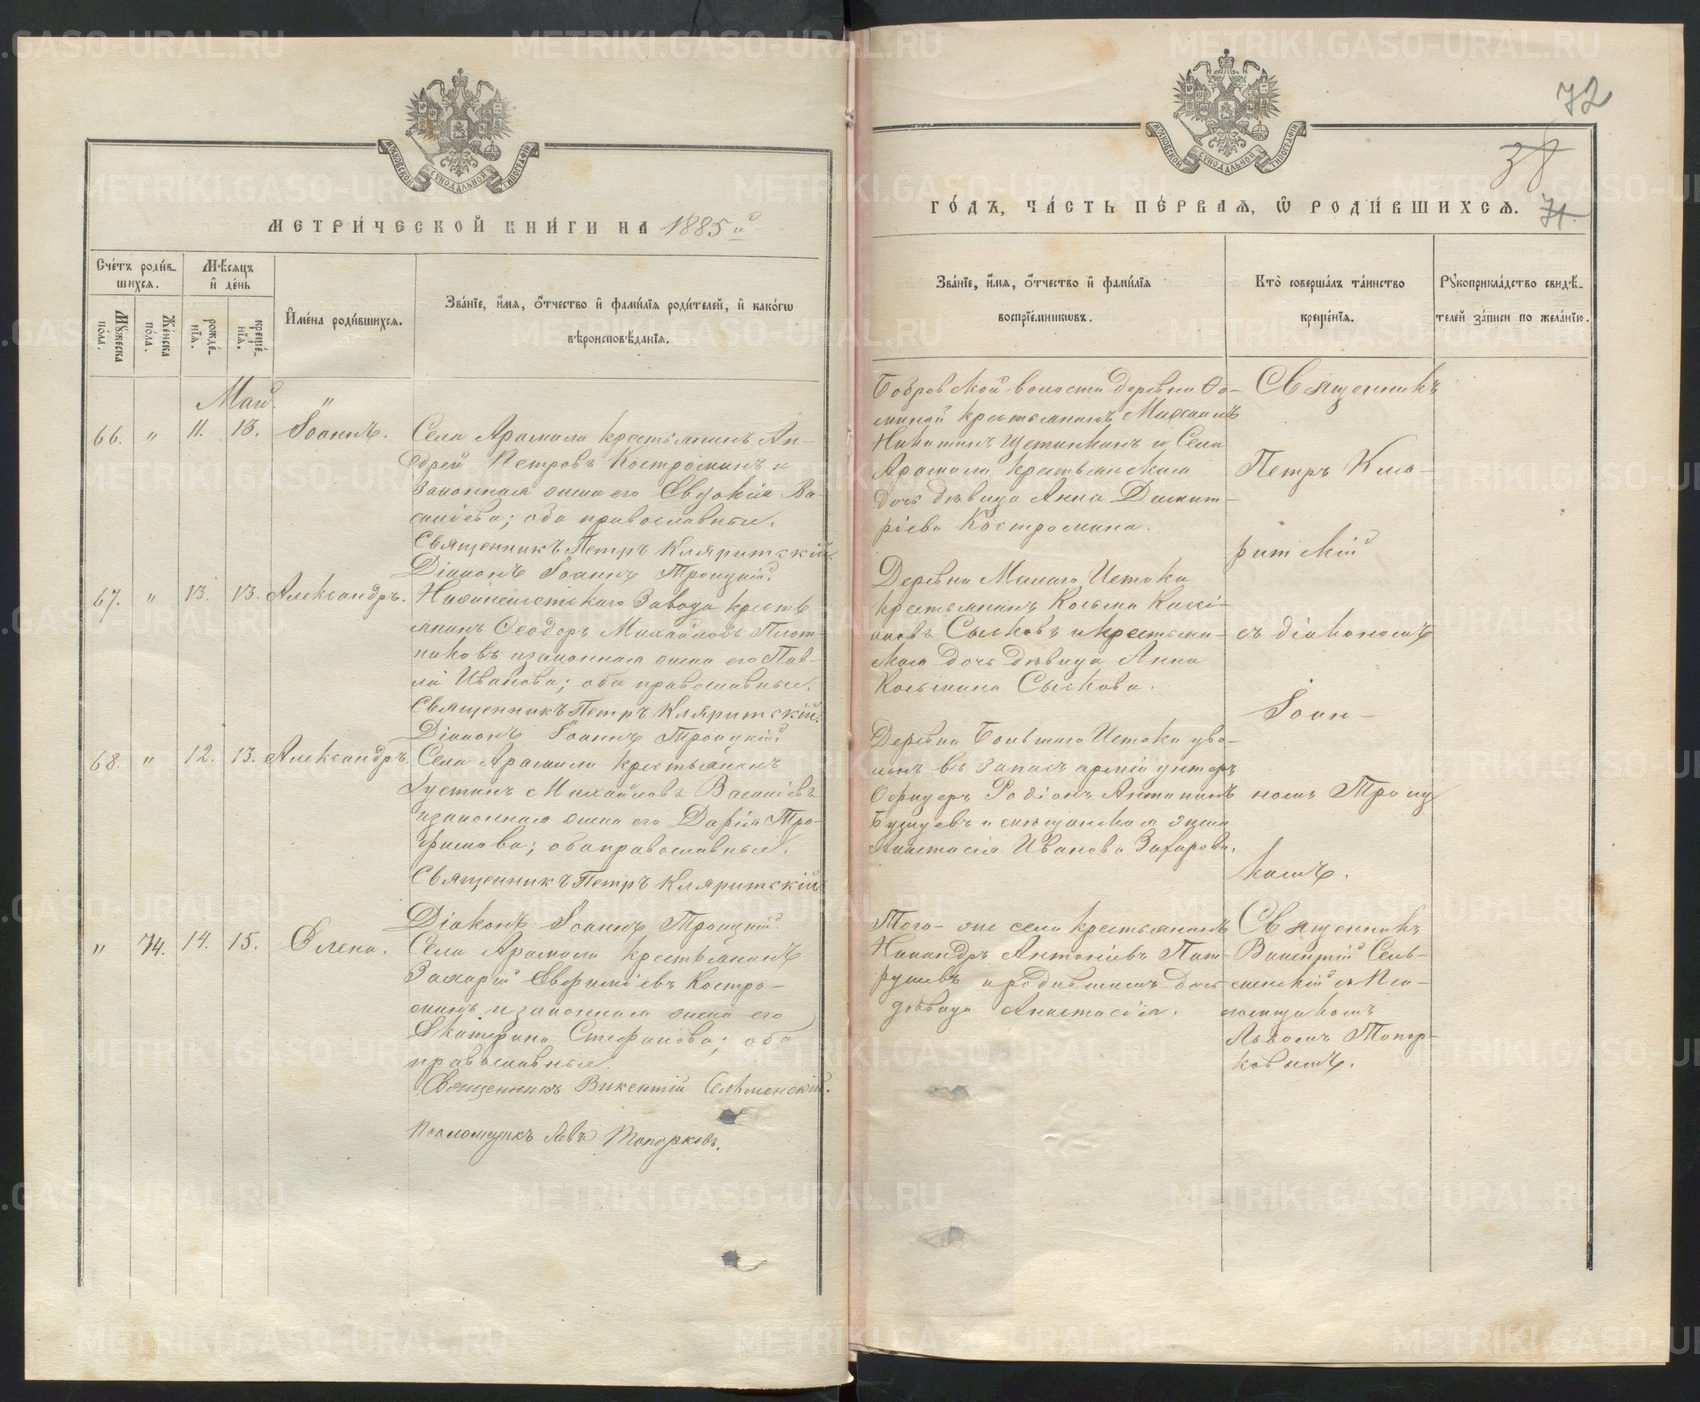 МОСКОВСКОЙ СѴНОДАЛЬНОЙ ТИПОГРАФІИ
МЕТРИ́ЧЕСКОЙ КНИ́ГИ НА 1885 й
Сче́тъ роди́в-
шихся.
Мѣ́сяцъ
и҆ де́нь
Му́жеска
по́ла.
Же́нска
по́ла.
рожде́-
нія.
креще́-
нія.
И҆мена̀ роди́вшихся.
Зва́ніе, и҆́мя, ѻ҆́тчество и҆ фами́лія роди́телей, и҆ како́гѡ
вѣроисповѣ́данія.
Май.
66. „ 11. 13. Іоаннъ.
Села Арамили крестьянинъ Ан-
дрей Петровъ Костроминъ и
законная жена его Евдокія Ва-
сильева; оба православные.
Священникъ Петръ Кляритскій.
Діаконъ Іоаннъ Троицкій.
67. „ 13. 13. Александръ.
Нижнеисетскаго Завода кресть-
янинъ Ѳеодоръ Михайловъ Плот-
никовъ и законная жена его Пав-
ла Иванова; оба православные.
Священникъ Петръ Кляритскій.
Діаконъ Іоаннъ Троицкій
68. „ 12. 13. Александръ.
Села Арамили крестьянинъ
Іустинъ Михайловъ Васильевъ
и законная жена его Дарія Тро-
фимова; оба православные.
Священникъ Петръ Кляритскій
Діаконъ Іоаннъ Троицкій.
„ 74. 14. 15. Елена.
Села Арамили крестьянинъ
Захарій Евфиміевъ Костро-
минъ и законная жена его
Екатерина Стефанова; оба
православные.
Священникъ Викентій Сельменскій.
Псаломщикъ Левъ Топорковъ.
72
38
71
МОСКОВСКОЙ СѴНОДАЛЬНОЙ ТИПОГРАФІИ
ГО́ДЪ, ЧА́СТЬ ПЕ́РВАЯ, Ѽ РОДИ́ВШИХСЯ.
Зва́ніе, и҆́мя, ѻ҆́тчество и҆ фами́лія
воспріе́мникѡвъ.
Кто̀ соверша́лъ та́инство
креще́нія.
Рꙋкоприкла́дство свидѣ́-
телей за́писи по жела́нію.
Бобровской волости деревни Ѳо-
миной крестьянинъ Михаилъ
Никитинъ Щетинкинъ и Села
Арамили крестьянская
дочь дѣвица Анна Димит-
ріева Костромина.
Деревни Малаго Истока
крестьянинъ Косьма
Сысковъ и крестьян-
ская дочь дѣвица Анна
Косьмина Сыскова.
Деревни Большаго Истока уво-
ленъ въ запасъ арміи унтеръ
Офицеръ Родіонъ Антонинъ
жена
Анастасія Иванова Захарова.
Того-же села крестьянинъ
Никандръ Антоніевъ Пат-
рушевъ и дочь
дѣвица Анастасія.
Священникъ
Петръ Кля-
ритскій
съ діакономъ
Іоан-
номъ Троиц
комъ.
Священникъ
Викентій Сель-
менскій съ Пса-
ломщикомъ
Львомъ Топор-
ковымъ.